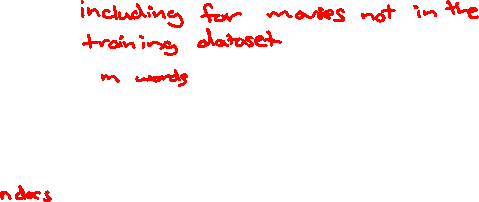 including for movies not in the
training dataset
m words